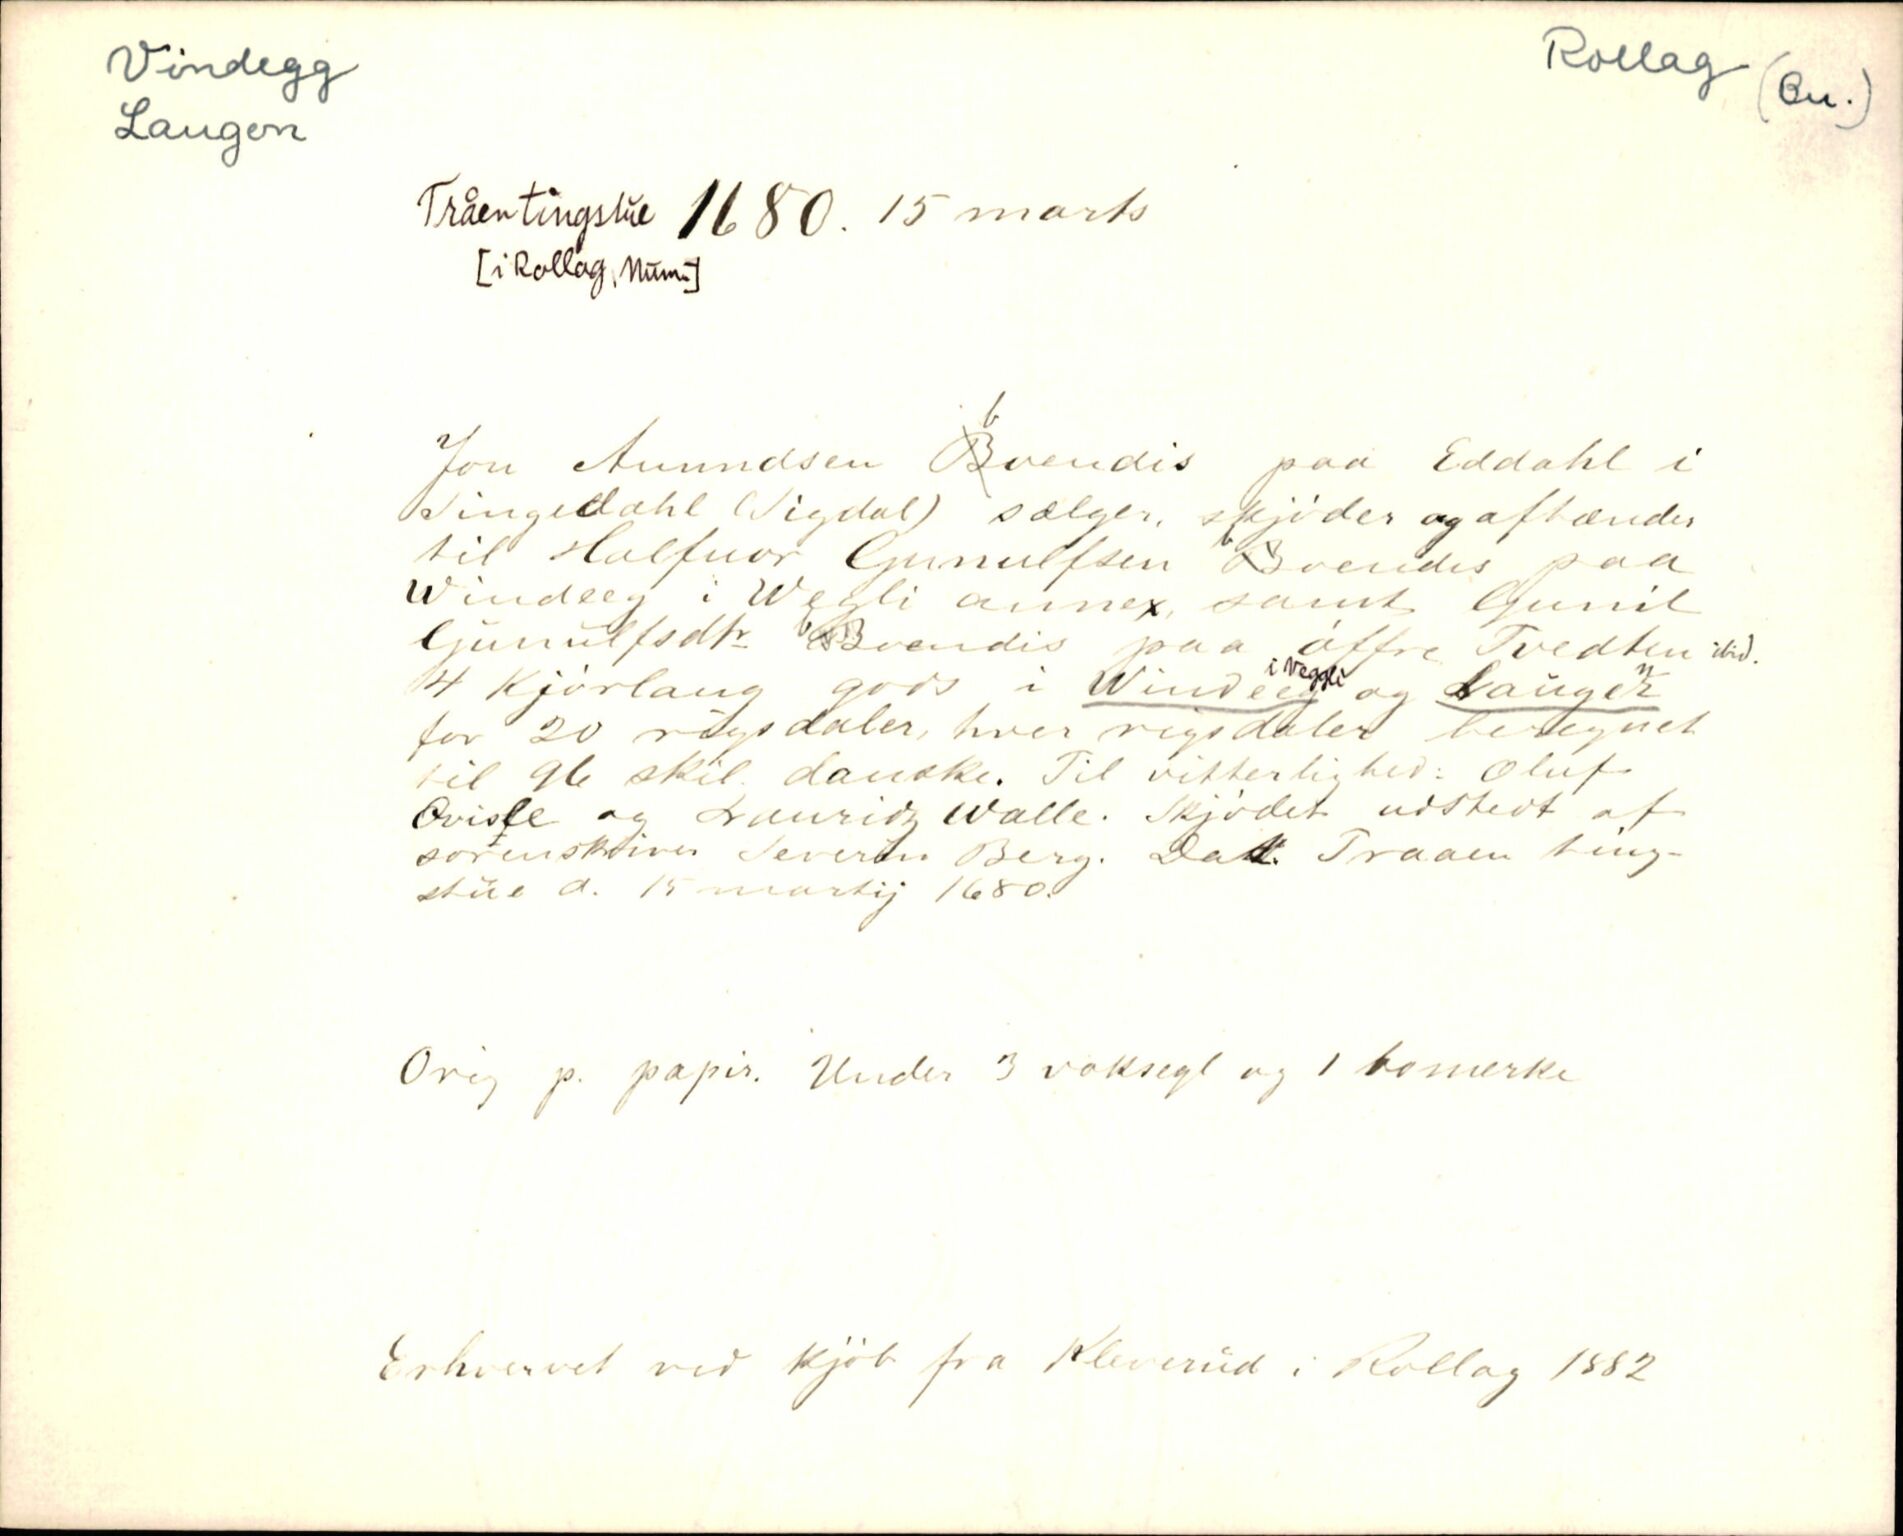 Vindegg
Laugen
Rollag (Bu.)
Tråen tingstue 1680. 15 marts
[i Rollag, Num.]
Jon Amundsen boendis paa Eddahl i
Singedahl (Sigdal) sælger, skjöder og afhænder
til Halfuor Gunulfsen boendes paa
Windeeg i Wegli annex, samt Gunil
Gunulfsdtr boendis paa öffre Tvedten ibid.
4 Kjörlaug gods i Windeeg i Veggli og Laugen
for 20 rigsdaler, hver rigsdaler beregnet
til 96 skil. danske. Til vitterlighed: Oluf
Qvisle og Lauridz Walle. Skjödet udstedt af
sorenskriver Severin Berg. Dat. Traaen ting-
stue d. 15 martij 1680.
Orig p. papir. Under 3 voksegl og 1 bomerke
Erhvervet ved kjöb fra Kleverud i Rollag 1882